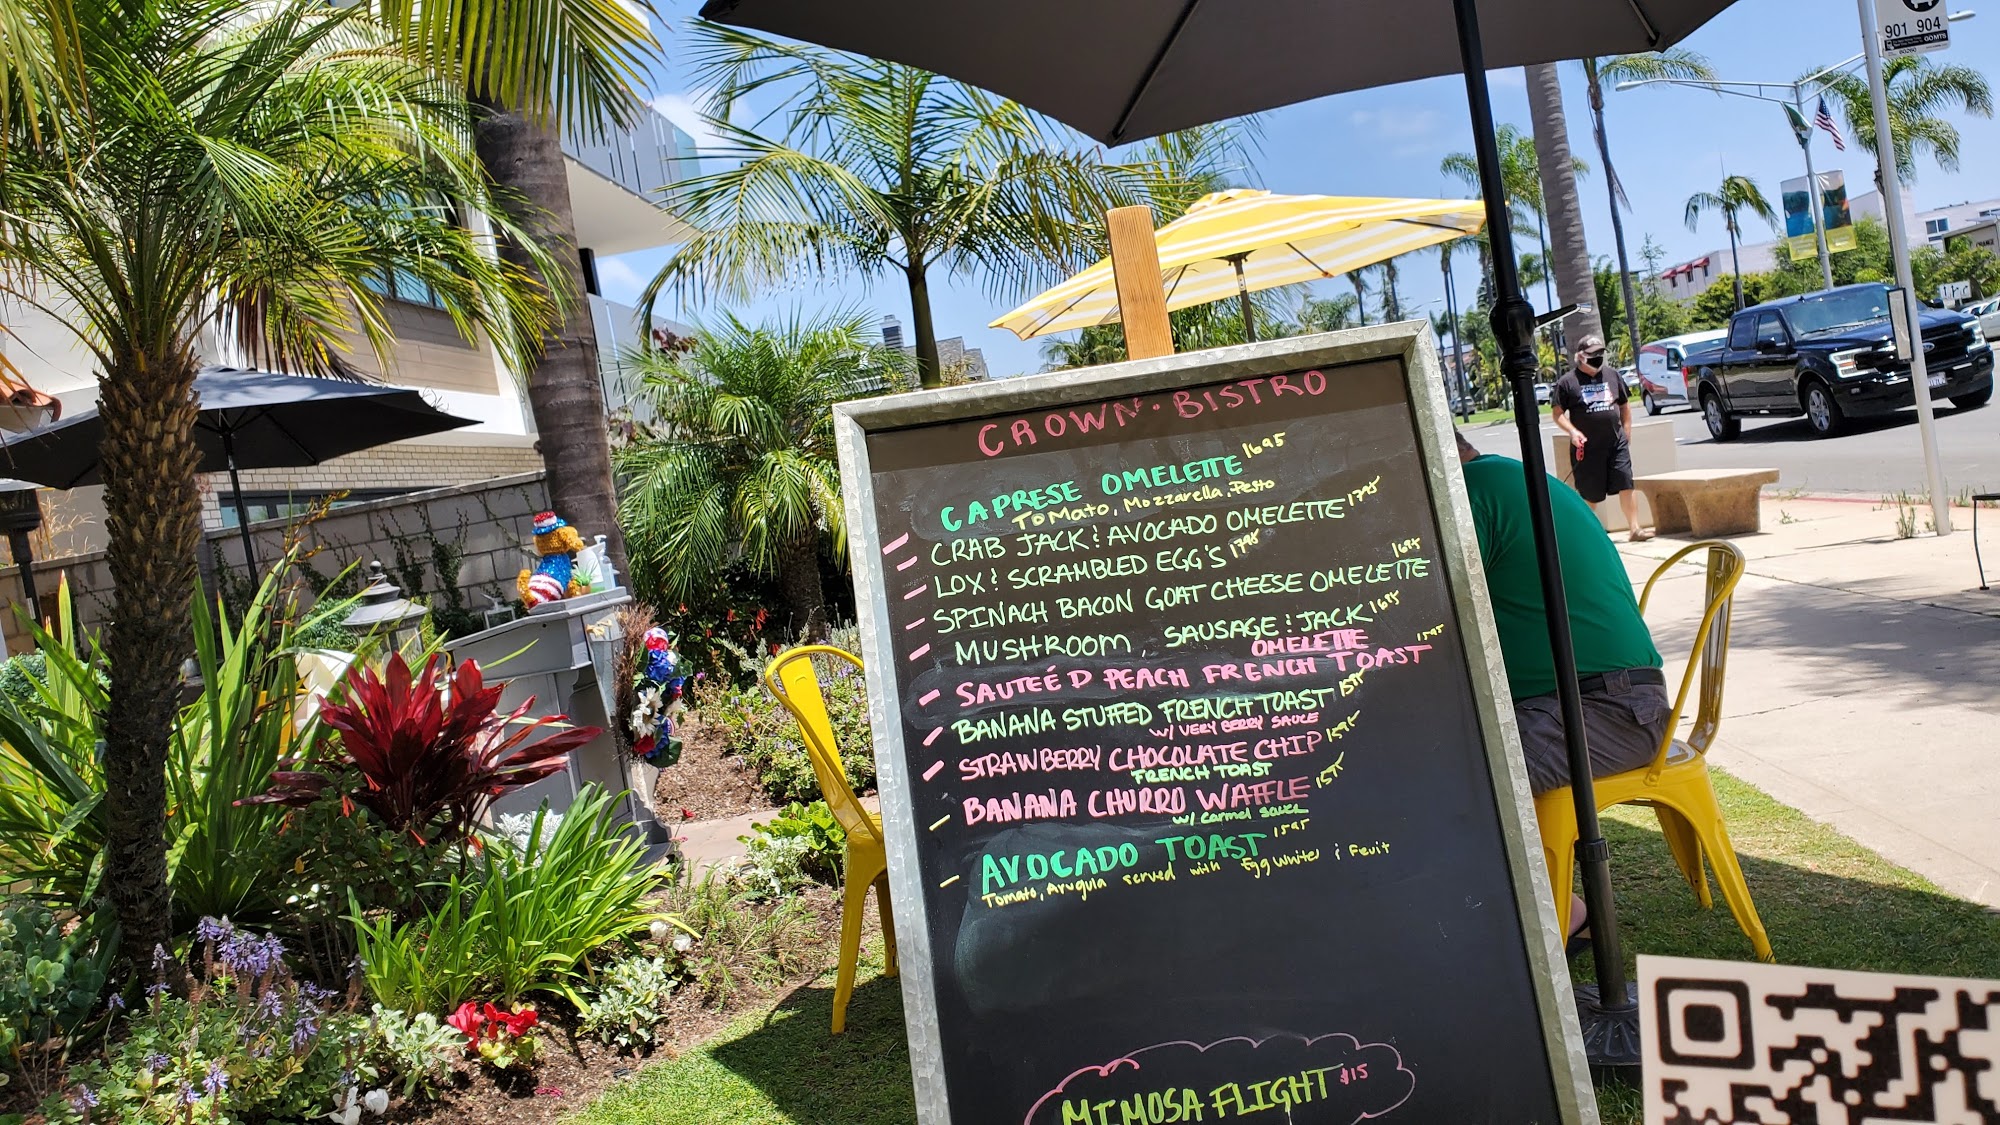 901 904
GOMTS
CROWN · BISTRO
CAPRESE OMELETTE 1695
TOMATO, Mozzarella, Pesto
CRAB JACK & AVOCADO OMELETTE 1795
LOX & SCRAMBLED EGG'S 1795
SPINACH BACON GOAT CHEESE OMELETTE 1695
MUSHROOM, SAUSAGE & JACK 1695
OMELETTE
SAUTEÉD PEACH FRENCH TOAST 1595
BANANA STUFFED FRENCH TOAST 1595
W/ VERY BERRY SAUCE
STRAWBERRY CHOCOLATE CHIP 1595
FRENCH TOAST
BANANA CHURRO WAFFLE 1595
w/ Carmel sauce
AVOCADO TOAST 1595
Tomato, Arugula served with Egg Whites & Fruit
MIMOSA FLIGHT $15